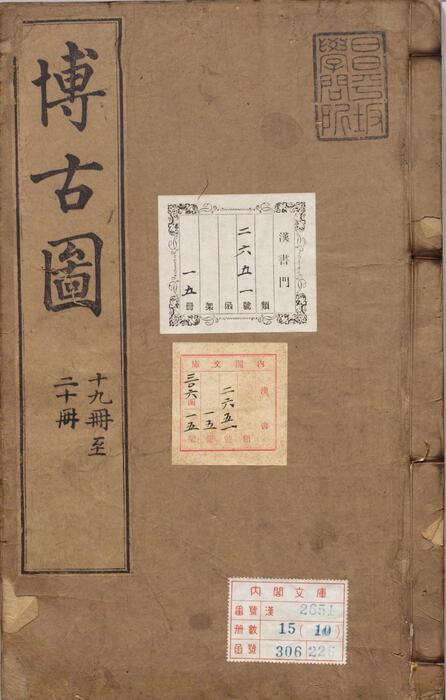 博古圖
十九冊至
二十冊
昌平坂
學問所
漢書門
二六五一
一五
類 號 函 架 冊
內閣文庫
漢書
二六五一
一五
三〇六函
一五
類 號 冊 架
內閣文庫
番號 漢 2651
冊數 15(10)
函號 306 226